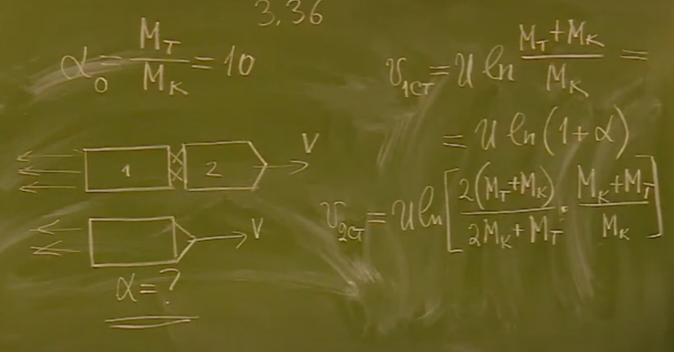 3.36
α₀ = M_T / M_K = 10
1 2 V
V
α = ?
υ_1ст = u ln (M_T + M_K) / M_K =
= u ln (1 + α)
υ_2ст = u ln [ 2(M_T + M_K) / (2M_K + M_T) · (M_K + M_T) / M_K ]